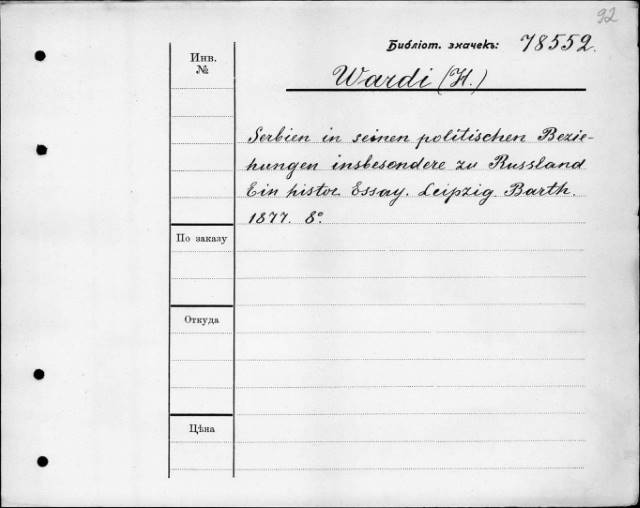 92
Библіот. значекъ: 78552.
Инв.
№
Wardi (H.)
Serbien in seinen politischen Bezie-
hungen insbesondere zu Russland
Ein histor. Essay. Leipzig. Barth.
1877. 8°.
По заказу
Откуда
Цѣна